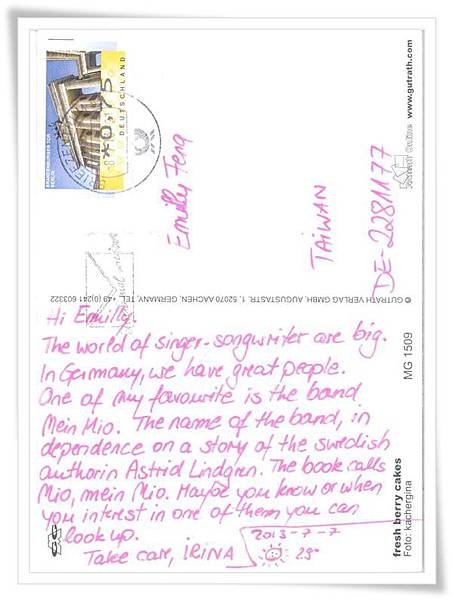 www.gutrath.com
DEUTSCHLAND
*0,75
BRANDENBURGER TOR
BERLIN
Emilly Feng
TAIWAN
DE-2281177
© GUTRATH VERLAG GMBH, AUGUSTASTR. 1, 52070 AACHEN, GERMANY, TEL. +49 (0)241 603322
MG 1509
fresh berry cakes
Foto: kachergina
Hi Emilly.
The world of singer-songwriter are big.
In Germany, we have great people.
One of my favourite is the band
Mein Mio. The name of the band, in
dependence on a story of the swedish
authorin Astrid Lindgren. The book calls
Mio, mein Mio. Maybe you know or when
you interest in one of them you can
look up.
Take care, IRINA
2013-7-7
28°